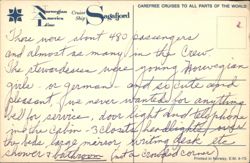 Norwegian
America
Line
Cruise
Ship
Sagafjord
CAREFREE CRUISES TO ALL PARTS OF THE WORLD
2
There were about 480 passengers
and almost as many in the crew
The stewardesses were young Norwegian
girls or german and so cute and
pleasant, we never wanted for anything
bell for service, door light and telephone
in the cabin - 3 closets
the beds, large mirror, writing desk etc
shower & bathroom not a crowded corner
Printed in Norway